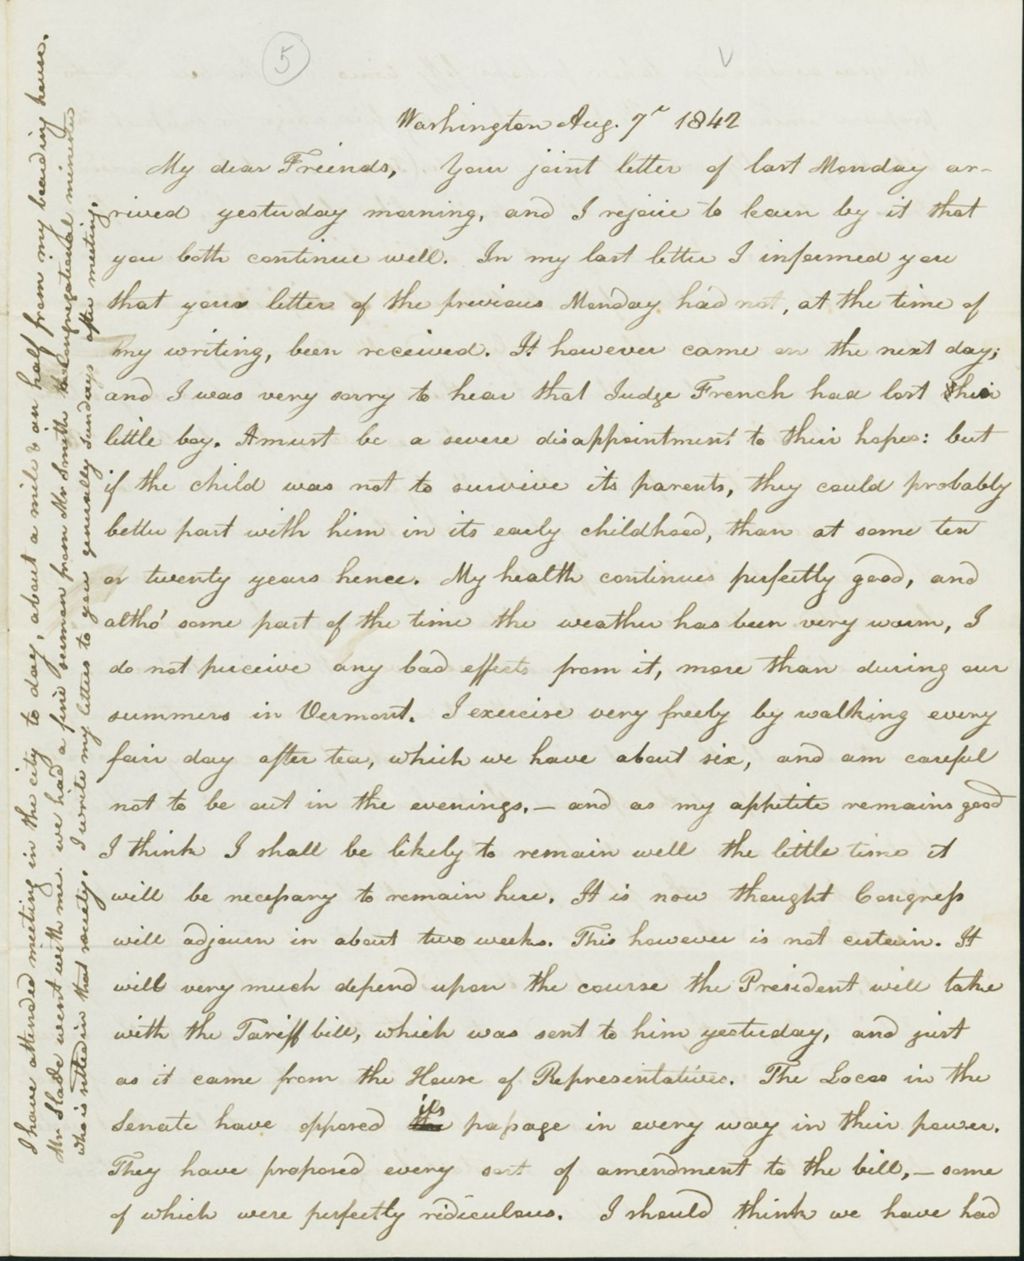 5
Washington Aug. 7th 1842
My dear Friends, Your joint letter of last Monday ar-
rived yesterday morning, and I rejoice to learn by it that
you both continue well. In my last letter I informed you
that your letter of the previous Monday had not, at the time of
my writing, been received. It however came on the next day;
and I was very sorry to hear that Judge French had lost their
little boy. It must be a severe disappointment to their hopes: but
if the child was not to survive its parents, they could probably
better part with him in its early childhood, than at some ten
or twenty years hence. My health continues perfectly good, and
altho' some part of the time the weather has been very warm, I
do not perceive any bad effects from it, more than during our
summers in Vermont. I exercise very freely by walking every
fair day after tea, which we have about six, and am careful
not to be out in the evenings,— and as my appetite remains good
I think I shall be likely to remain well the little time it
will be necessary to remain here. It is now thought Congress
will adjourn in about two weeks. This however is not certain. It
will very much depend upon the course the President will take
with the Tariff bill, which was sent to him yesterday, and just
as it came from the House of Representatives. The Locos in the
Senate have opposed its passage in every way in their power.
They have proposed every sort of amendment to the bill,— some
of which were perfectly ridiculous. I should think we have had
I have attended meeting in the city to day, about a mile & an half from my boarding house.
Mr Slade went with me. we had a fine sermon from Mr Smith the Congregational minister
who is settled in that society. I write my letters to you generally Sundays after meeting.